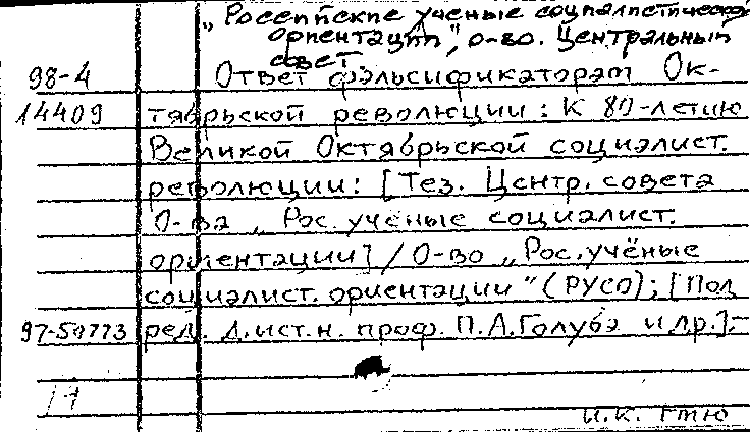 „Российские ученые социалистической
ориентации", о-во. Центральный
совет.
98-4 Ответ фальсификаторам Ок-
14409 тябрьской революции: К 80-летию
Великой Октябрьской социалист.
революции: [Тез. Центр. совета
О-ва „Рос. учёные социалист.
ориентации] / О-во „Рос. учёные
социалист. ориентации" (РУСО); [Под
97-50773 ред. д.ист.н. проф. П.А.Голуба и др.].-